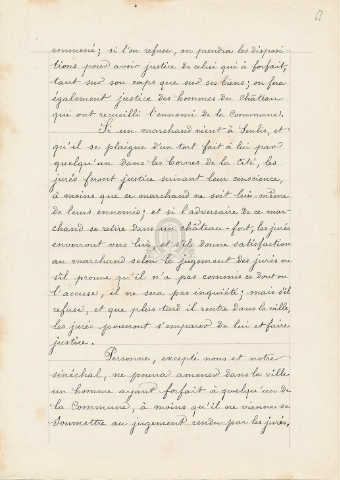 emmené; si l'on refuse, on prendra les disposi
tions pour avoir justice de celui qui a forfait,
tant sur son corps que sur ses biens; on fera
également justice des hommes du château
qui ont recueilli l'ennemi de la Commune.
Si un marchand vient à Senlis, et
qu'il se plaigne d'un tort fait à lui par
quelqu'un dans les bornes de la Cité, les
jurés feront justice suivant leur conscience,
à moins que ce marchand ne soit lui-même
de leurs ennemis; et si l'adversaire de ce mar-
chand se retire dans un château-fort, les jurés
enverront vers lui, et s'il donne satisfaction
au marchand selon le jugement des jurés ou
s'il prouve qu'il n'a pas commis ce dont on
l'accuse, il ne sera pas inquiété; mais s'il
refuse, et que plus tard il rentre dans la ville,
les jurés pourront s'emparer de lui et faire
justice.
Personne, excepté nous et notre
sénéchal, ne pourra amener dans la ville
un homme ayant forfait à quelqu'un de
la Commune, à moins qu'il ne vienne se
soumettre au jugement rendu par les jurés,